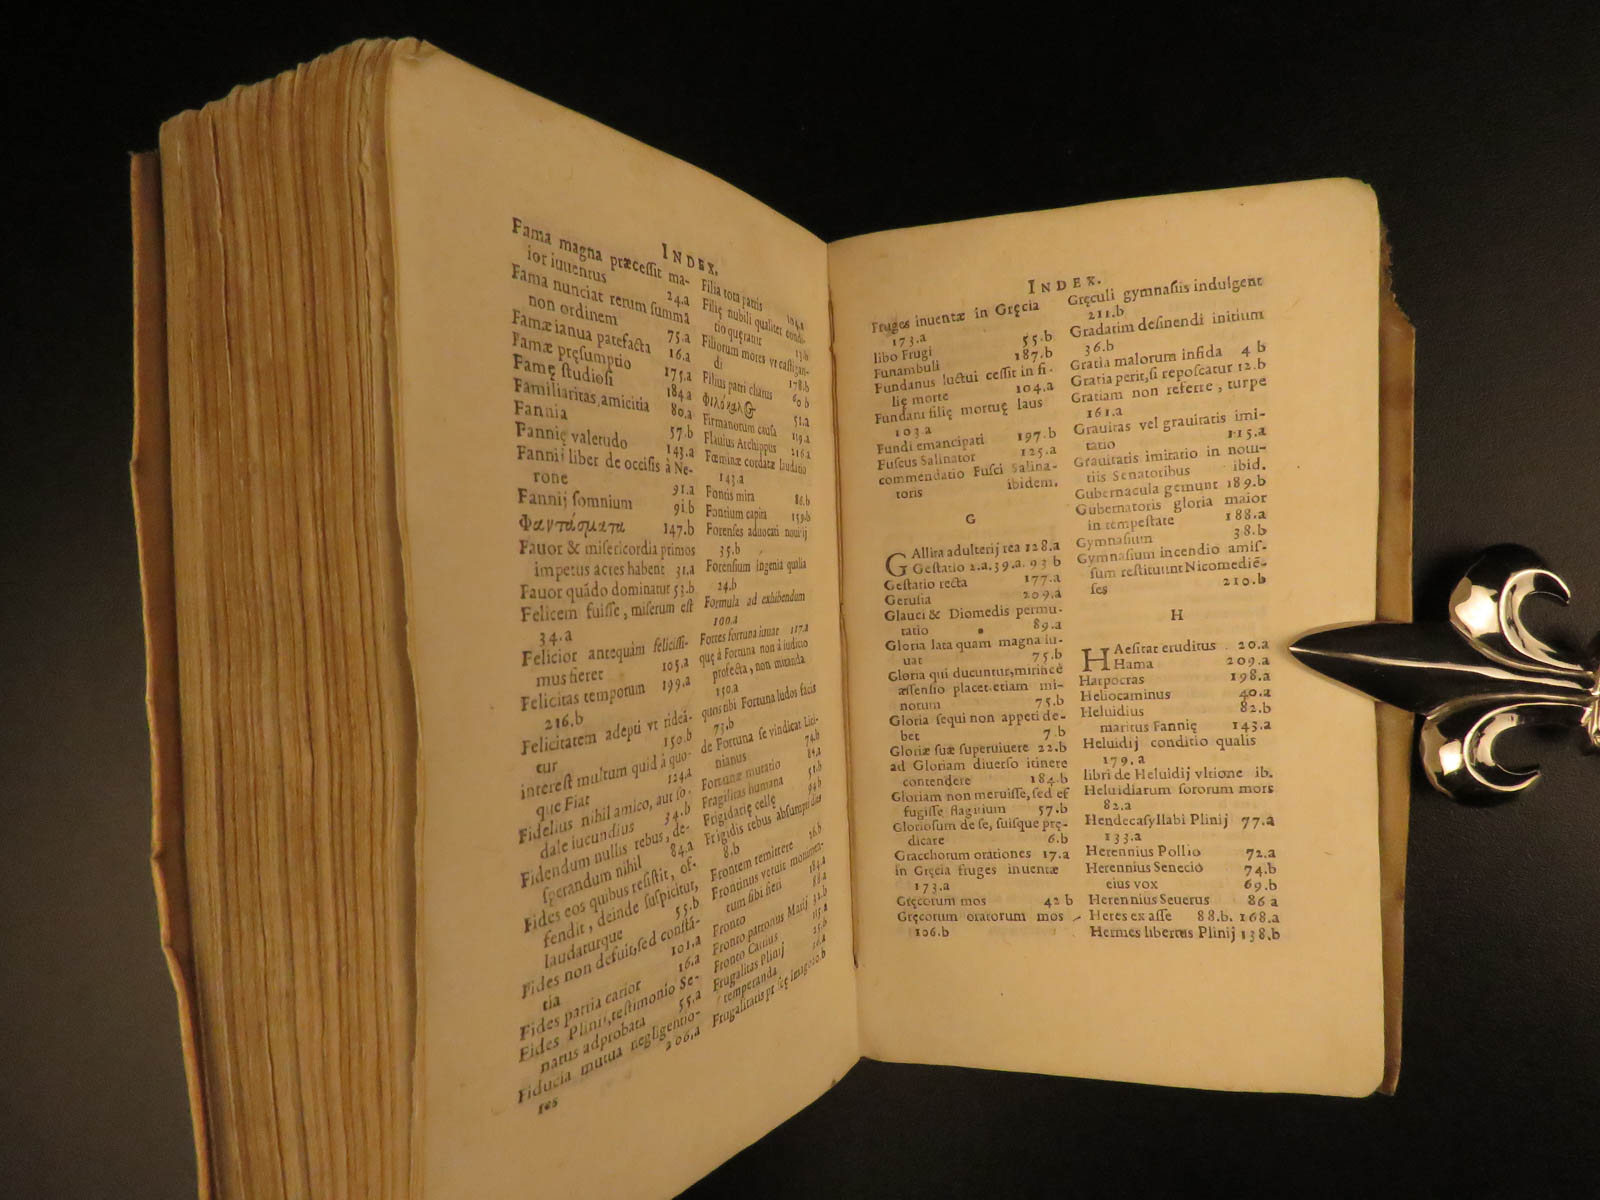 INDEX.
Fama magna præcessit ma-
ior iuuentus 24.a
Fama nunciat rerum summā
non ordinem 75.a
Famæ ianua patefacta 16.a
Famæ pręsumptio 175.a
Famę studiosi 184.a
Familiaritas, amicitia 80.a
Fannia 57.b
Fannię valetudo 143.a
Fannij liber de occisis à Ne-
rone 91.a
Fannij somnium 91.b
Φαντάσματα 147.b
Fauor & misericordia primos
impetus acres habent 31.a
Fauor quādo dominatur 53.b
Felicem fuisse, miserum est
34.a
Felicior antequàm felicissi-
mus fieret 105.a
Felicitas temporum 199.a
216.b
Felicitatem adepti vt rideā-
tur 150.b
interest multum quid à quo-
que Fiat 124.a
Fidelius nihil amico, aut so-
dale iucundius 34.b
Fidendum nullis rebus, de-
sperandum nihil 84.a
Fides eos quibus resistit, of-
fendit, deinde suspicitur,
laudaturque 55.b
Fides non defuit, sed constā-
tia 101.a
Fides patria carior 16.a
Fides Plinii, testimonio Se-
natus adprobata 55.a
Fiducia mutua negligentio-
res 206.a
Filia tota patris 104.a
Filię nubili qualiter condi-
tio quęratur 13.b
Filiorum mores vt castigan-
di 178.b
Filius patri charus 60.b
51.a
Firmanorum causa 119.a
Flauius Archippus 216.a
Fœminæ cordatæ laudatio
143.a
Fontis mira 86.b
Fontium capita 159.b
Forenses aduocati nouitij
35.b
Forensium ingenia qualia
24.b
Formula ad exhibendum
100.a
Fortes fortuna iuuat 117.a
quę à Fortuna non à iudicio
profecta, non muanda
150.a
quos tibi Fortuna ludos facis
73.b
de Fortuna se vindicat Lici-
nianus 74.b
Fortunæ mutatio 84.a
Fragilitas humana 51.b
Frigidarię cellę 94.b
Frigidis rebus absumpti dies
8.b
Frontem remittere 26.b
Frontinus vetuit monumen-
tum sibi fieri 184.a
Fronto 88.a
Fronto patronus Marij 32.b
Fronto Catius 115.a
Frugalitas Plinij 25.b
temperanda 16.a
INDEX.
Fruges inuentæ in Gręcia
173.a
libo Frugi 55.b
Funambuli 187.b
Fundanus luctui cessit in fi-
lię morte 104.a
Fundani filię mortuę laus
103.a
Fundi emancipati 197.b
Fuscus Salinator 125.a
commendatio Fusci Salina-
toris ibidem.
G
GAllira adulterij rea 128.a
Gestatio 2.a. 39.a. 93 b
Gestatio recta 177.a
Gerusia 209.a
Glauci & Diomedis permu-
tatio 89.a
Gloria lata quam magna iu-
uat 75.b
Gloria qui ducuntur, mirincè
assensio placet etiam mi-
norum 75.b
Gloria sequi non appeti de-
bet 7.b
Gloriæ suæ superuiuere 22.b
ad Gloriam diuerso itinere
contendere 184.b
Gloriam non meruisse, sed ef
fugisse flagitium 57.b
Gloriosum de se, suisque prę-
dicare 6.b
Gracchorum orationes 17.a
in Gręcia fruges inuentæ
173.a
Gręcorum mos 42 b
Gręcorum oratorum mos
106.b
Gręculi gymnasiis indulgent
211.b
Gradatim desinendi initium
36.b
Gratia malorum infida 4 b
Gratia perit, si reposcatur 12.b
Gratiam non referre, turpe
161.a
Grauitas vel grauitatis imi-
tatio 115.a
Grauitatis imitatio in noui-
tiis Senatoribus ibid.
Gubernacula gemunt 189.b
Gubernatoris gloria maior
in tempestate 188.a
Gymnasium 38.b
Gymnasium incendio amis-
sum restituunt Nicomediē-
ses 210.b
H
HAesitat eruditus 20.a
Hama 209.a
Harpocras 198.a
Heliocaminus 40.a
Heluidius 82.b
maritus Fannię 143.a
Heluidij conditio qualis
179.a
libri de Heluidij vltione ib.
Heluidiarum sororum mors
82.a
Hendecasyllabi Plinij 77.a
133.a
Herennius Pollio 72.a
Herennius Senecio 74.b
eius vox 69.b
Herennius Seuerus 86 a
Heres ex asse 88.b. 168.a
Hermes libertus Plinij 138.b